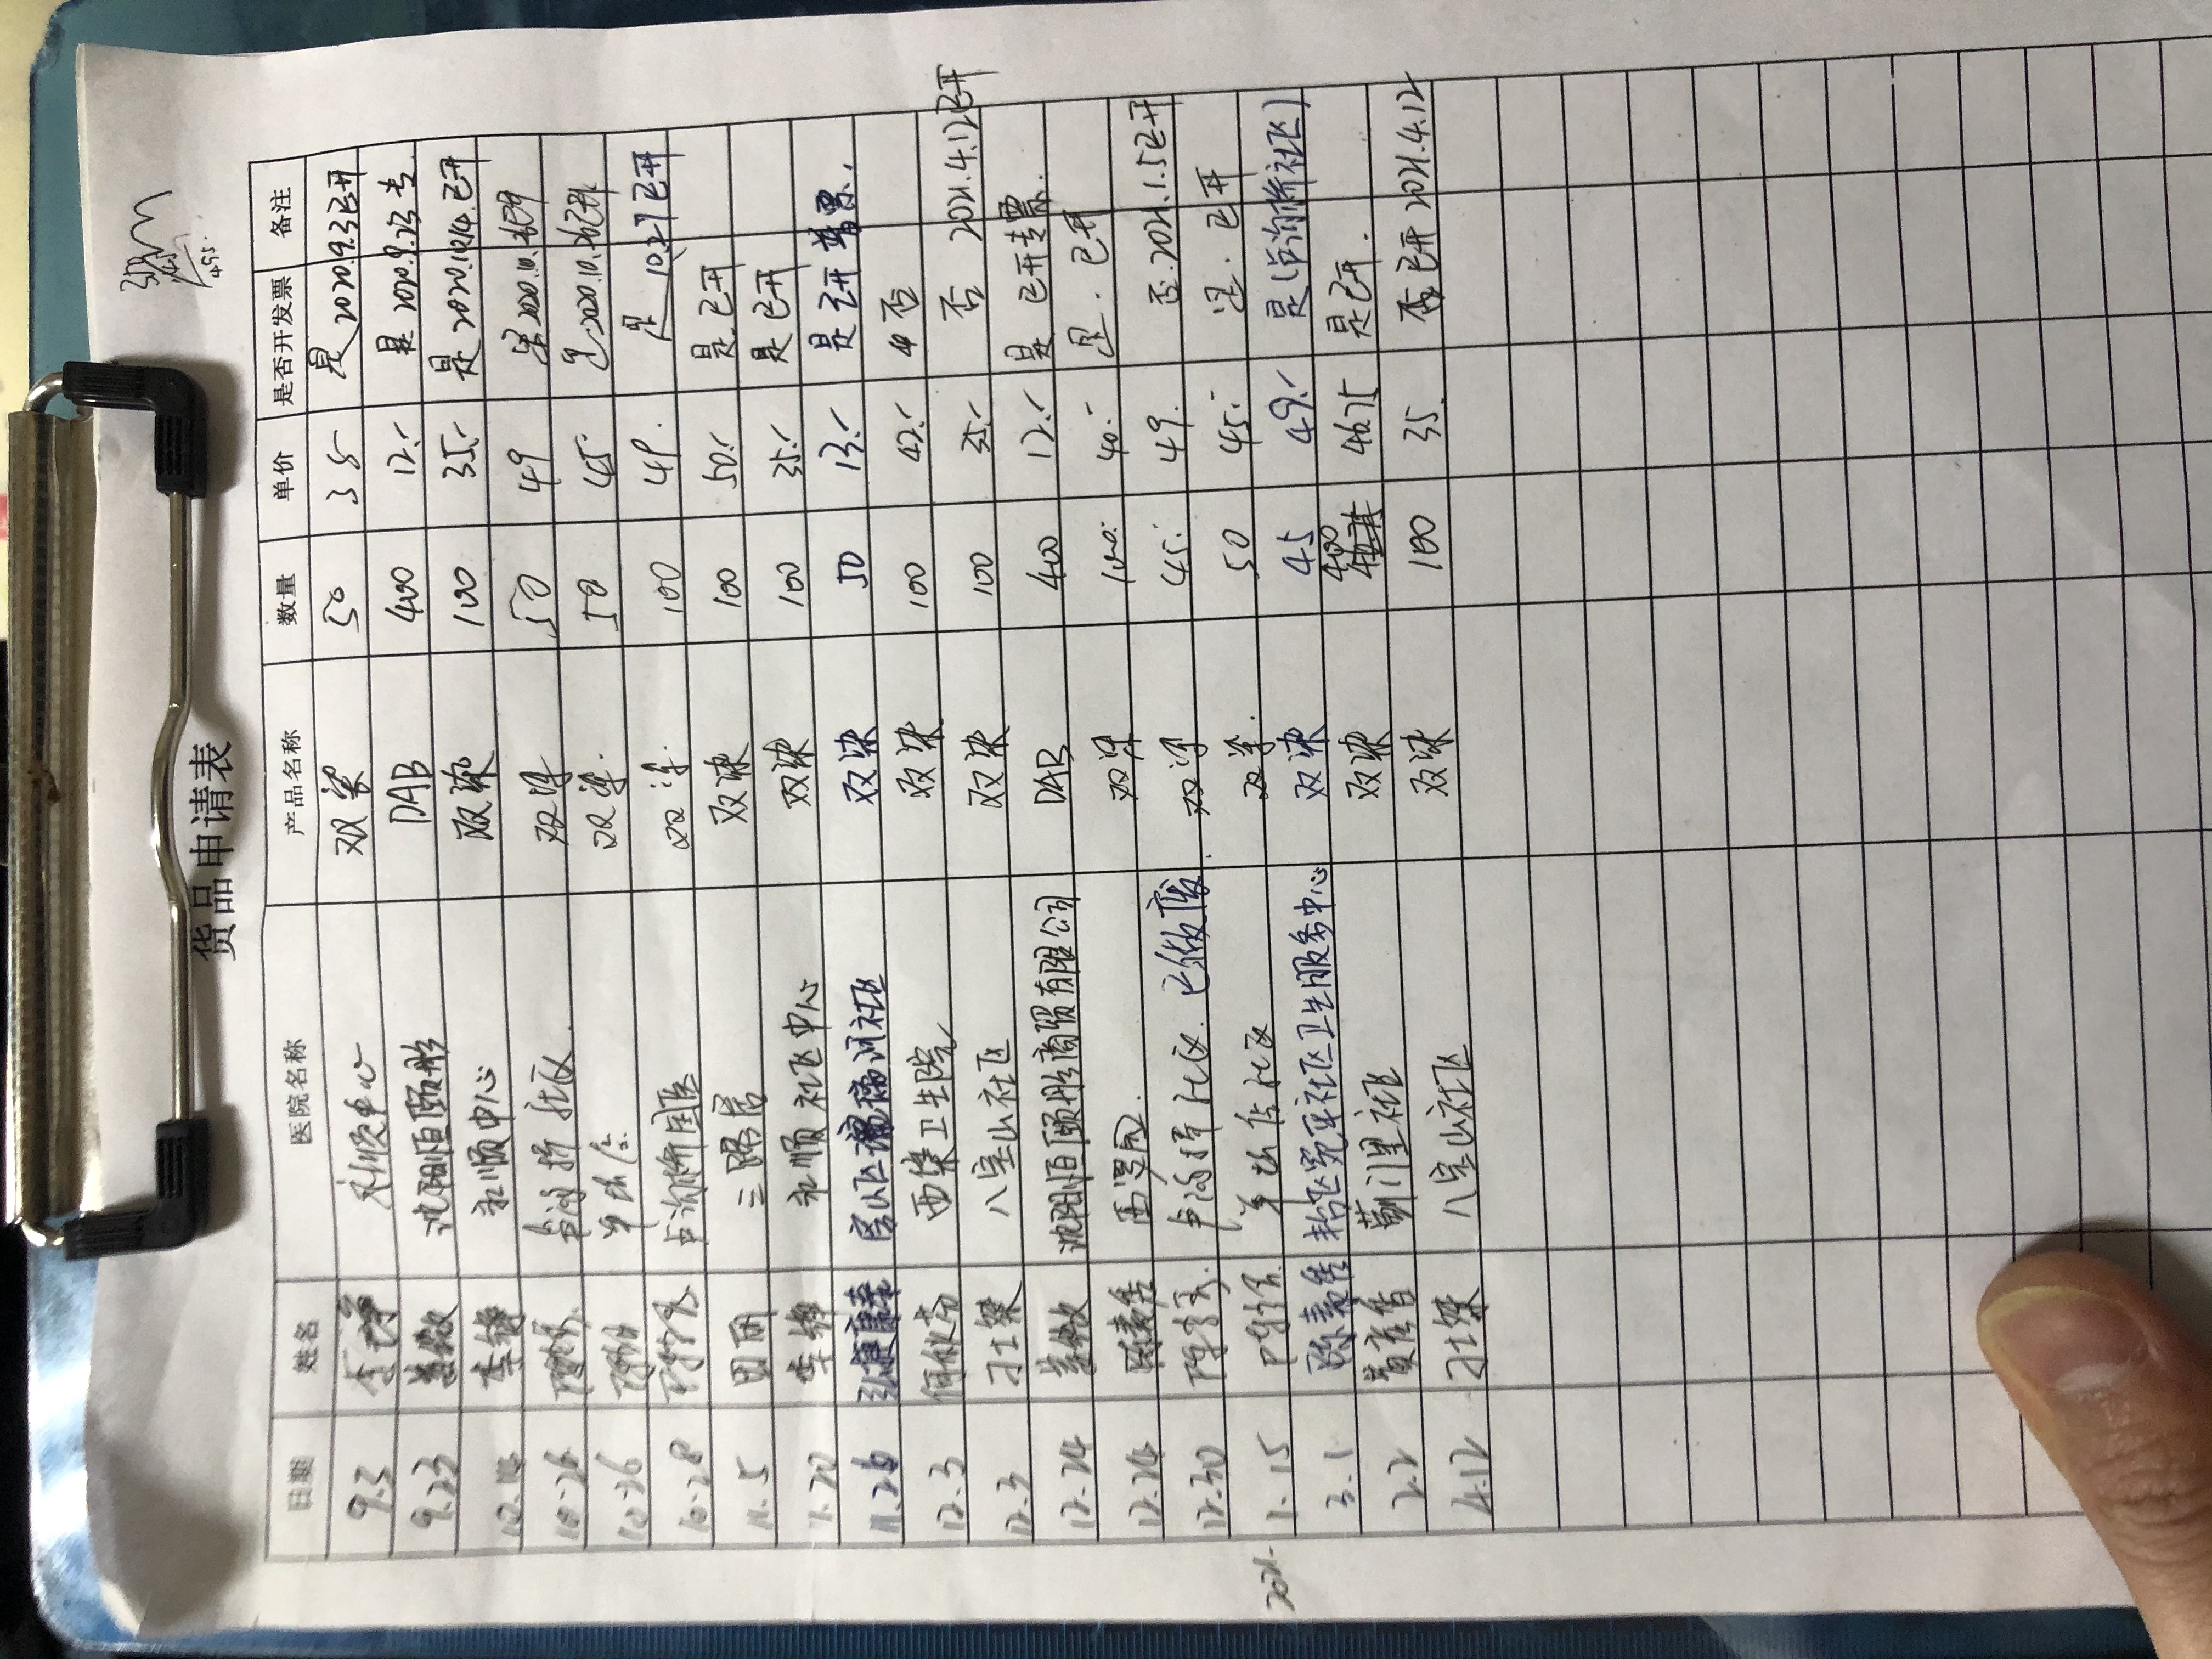 货品申请表
日期 姓名 医院名称 产品名称 数量 单价 是否开发票 备注
9.3 李铮 永顺中心 双染 50 35 是 2020.9.3已开
9.23 沈阳恒颐彤 DAB 400 12.- 是 2020.9.23 专.
10.14 李铮 永顺中心 双染 100 35.- 是 2020.10.14.已开
10.26 卢沟桥社区. 双染 50 49 是2020.10.26已开
10.26 双染. 50 45 是2020.10.26已开
10.28 卢沟桥国医 双染. 100 49. 是 10.27已开
11.5 田丽 三路居 双染 100 50.- 是.已开
11.20 李铮 永顺社区中心 双染 100 35.- 是已开
11.26 弘捷康泰 房山区琉璃河社区 双染 50 13.- 是已开普票.
12.3 何秋芬 西集卫生院 双染 100 42.- 否
12.3 刁士桀 八宝山社区 双染 100 35.- 否 2021.4.12已开
12.24 沈阳恒颐彤商贸有限公司 DAB 400 12.- 是 已开专票.
12.24 陈素秀 西罗园. 双染 100.- 40.- 是. 已开
12.30 卢沟桥社区. 已做废. 双染 45.- 49. 否.2021.1.5已开
2021- 1.15 社区 双染. 50 45.- 是. 已开
3.1 陈素秀 丰台区宛平社区卫生服务中心 双染 45 49.- 是(卢沟桥社区)
2.2 黄彦香 蓟门里社区 双染 400 46.75 是已开.
4.12 刁士桀 八宝山社区 双染 100 35. 否 已开 2021.4.12